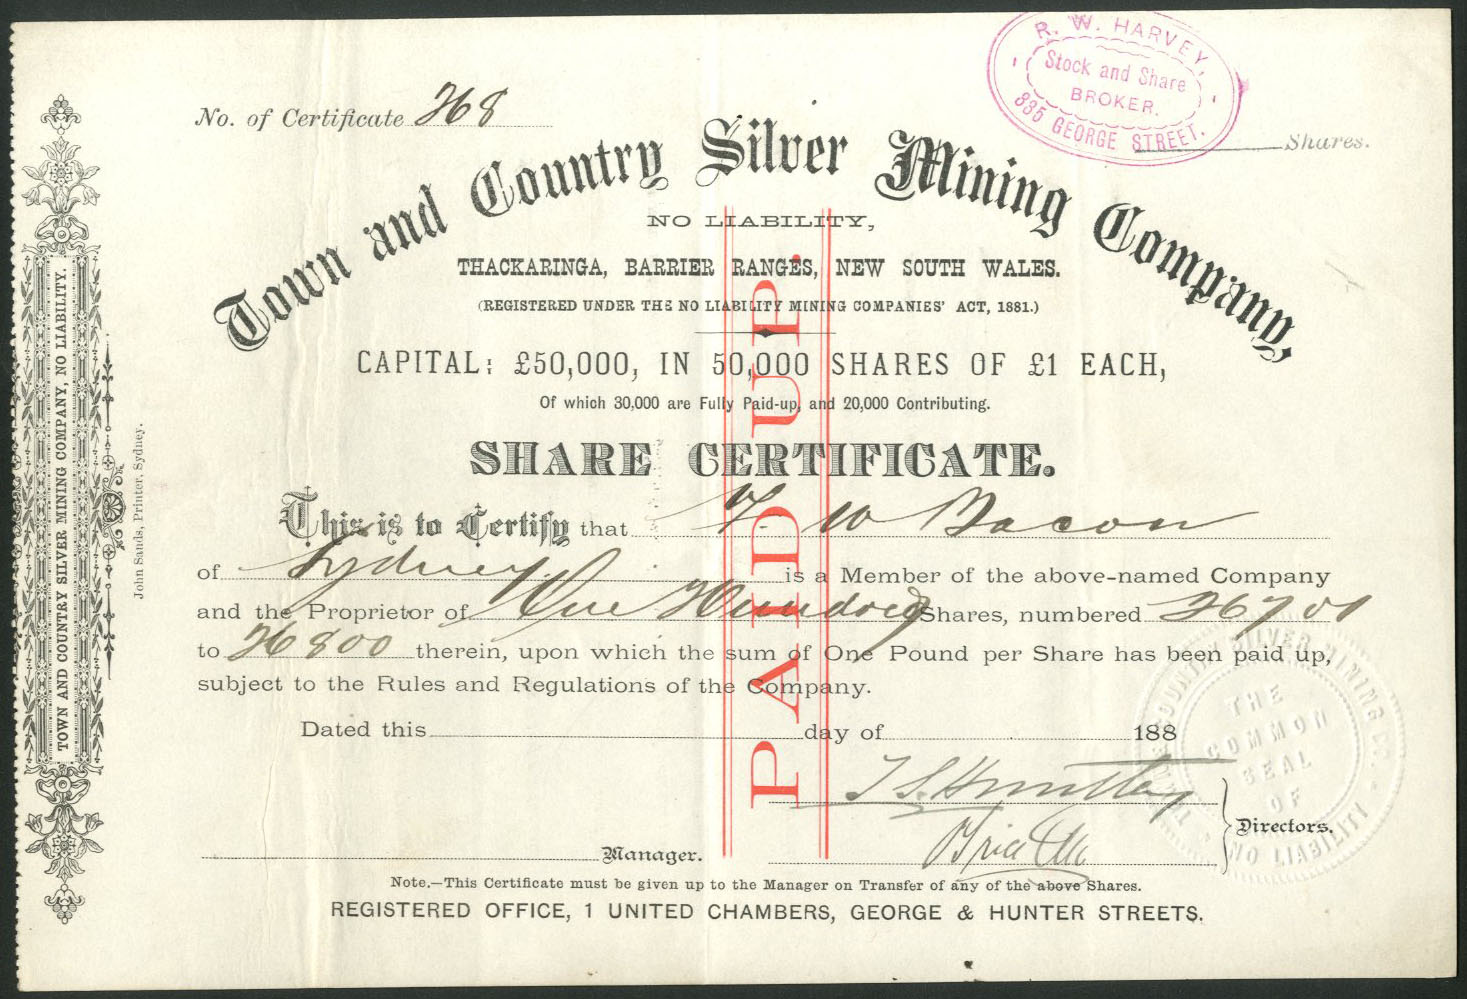 R. W. HARVEY,
Stock and Share
BROKER.
335 GEORGE STREET.
No. of Certificate 268
Shares.
Town and Country Silver Mining Company,
NO LIABILITY,
THACKARINGA, BARRIER RANGES, NEW SOUTH WALES.
(REGISTERED UNDER THE NO LIABILITY MINING COMPANIES' ACT, 1881.)
CAPITAL: £50,000, IN 50,000 SHARES OF £1 EACH,
Of which 30,000 are Fully Paid-up, and 20,000 Contributing.
SHARE CERTIFICATE.
This is to Certify that F. W Bacon
of Sydney is a Member of the above-named Company
and the Proprietor of One Hundred Shares, numbered 26701
to 26800 therein, upon which the sum of One Pound per Share has been paid up,
subject to the Rules and Regulations of the Company.
Dated this day of 188
Directors.
Manager.
Note.—This Certificate must be given up to the Manager on Transfer of any of the above Shares.
REGISTERED OFFICE, 1 UNITED CHAMBERS, GEORGE & HUNTER STREETS.
PAID UP.
TOWN AND COUNTRY SILVER MINING COMPANY, NO LIABILITY.
John Sands, Printer, Sydney.
COUNTRY SILVER MINING CO.
THE
COMMON
SEAL
OF
NO LIABILITY